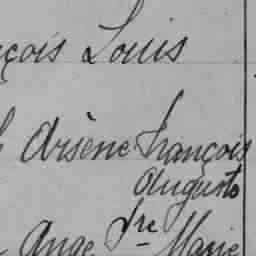 çois Louis
Arsène François
Auguste
Ange Fre Marie